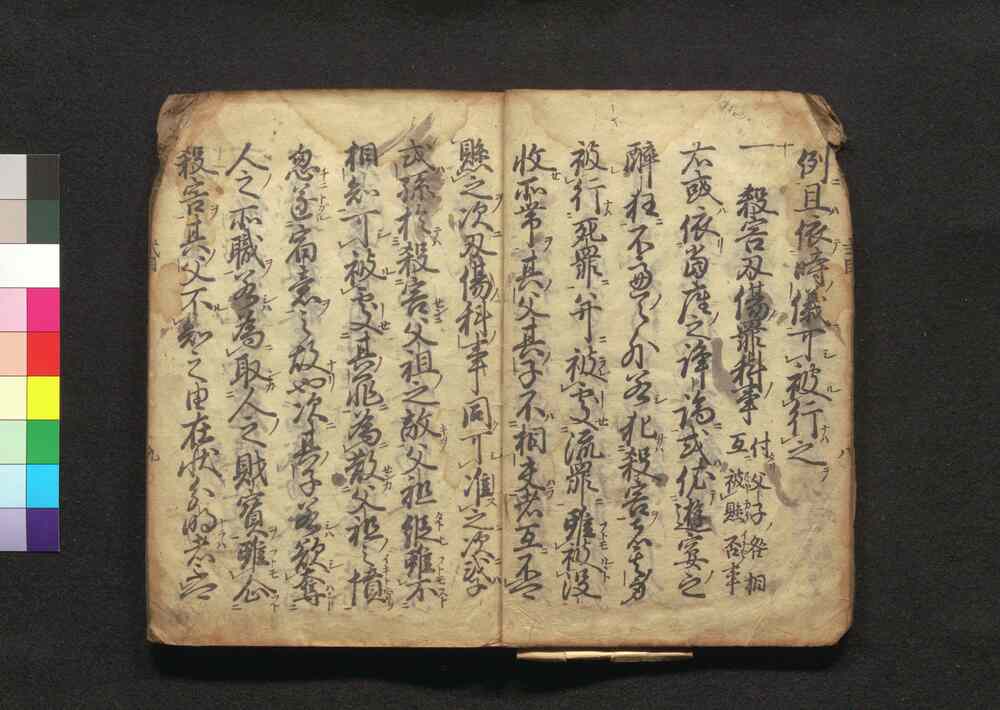 例且依時儀可被行之
一 殺害刃傷罪科事 付父子咎相
互被懸否事
右或依當座之諍論或依遊宴之
醉狂不慮之外若犯殺害者其身
被行死罪并被處流罪雖被没
收所帯其父其子不相交者互不可
懸之次刃傷科事同可准之次或子
或孫於殺害父祖之敵父祖縦雖不
相知可被處其罪為散父祖之憤
忽遂宿意之故也次其子若欲奪
人之所職若為取人之財寶雖企
殺害其父不知之由在状分明者不可